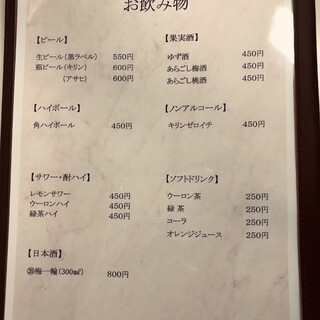 お飲み物
【ビール】
生ビール(黒ラベル) 550円
瓶ビール(キリン) 600円
(アサヒ) 600円
【ハイボール】
角ハイボール 450円
【サワー・酎ハイ】
レモンサワー 450円
ウーロンハイ 450円
緑茶ハイ 450円
【日本酒】
梅一輪(300㎖) 800円
【果実酒】
ゆず酒 450円
あらごし梅酒 450円
あらごし桃酒 450円
【ノンアルコール】
キリンゼロイチ 450円
【ソフトドリンク】
ウーロン茶 250円
緑茶 250円
コーラ 250円
オレンジジュース 250円